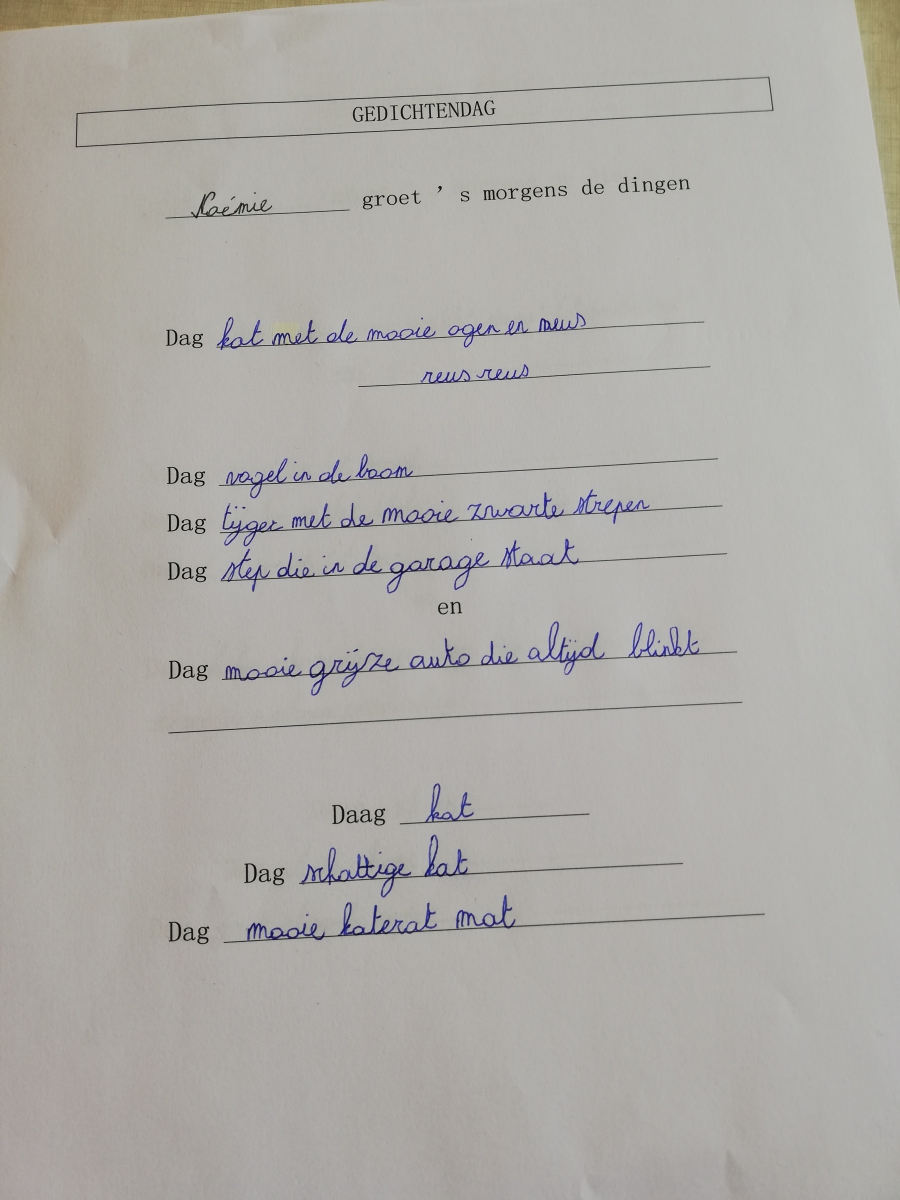 GEDICHTENDAG
Noémie groet 's morgens de dingen
Dag kat met de mooie ogen en neus
reus reus
Dag vogel in de boom
Dag tijger met de mooie zwarte strepen
Dag step die in de garage staat
en
Dag mooie grijze auto die altijd blinkt
Daag kat
Dag schattige kat
Dag mooie katerat mat